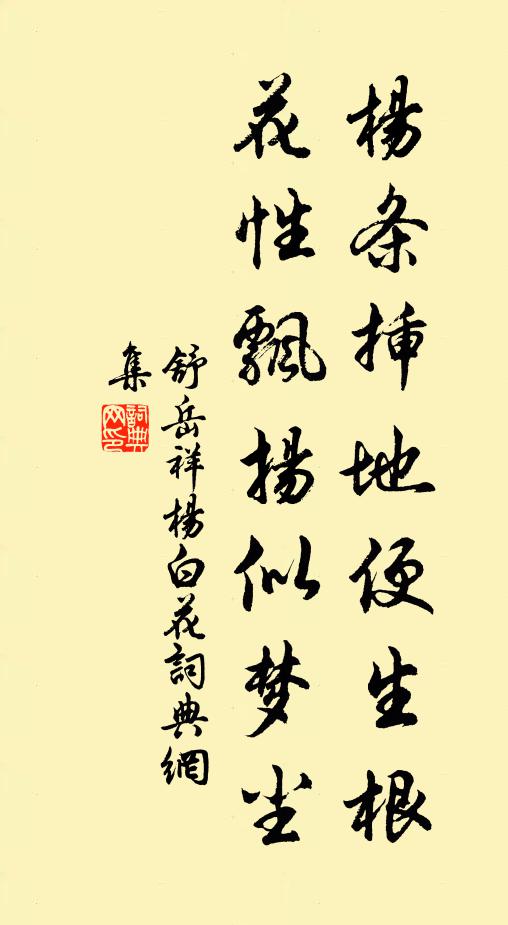 杨条插地便生根
花性飘扬似梦尘
舒岳祥杨白花词典网
集
词典
网印